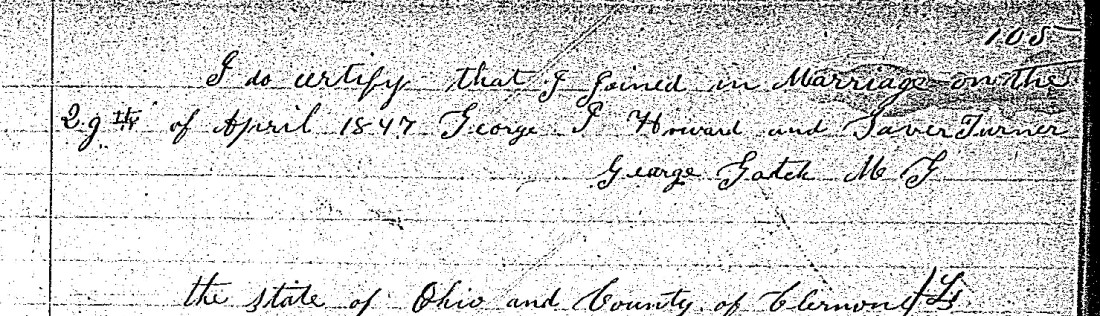 105
I do certify that I Joined in Marriage on the
29th of April 1847 George P Howard and Saver Turner
George Gatch M G
the state of Ohio and County of Clermont Ls